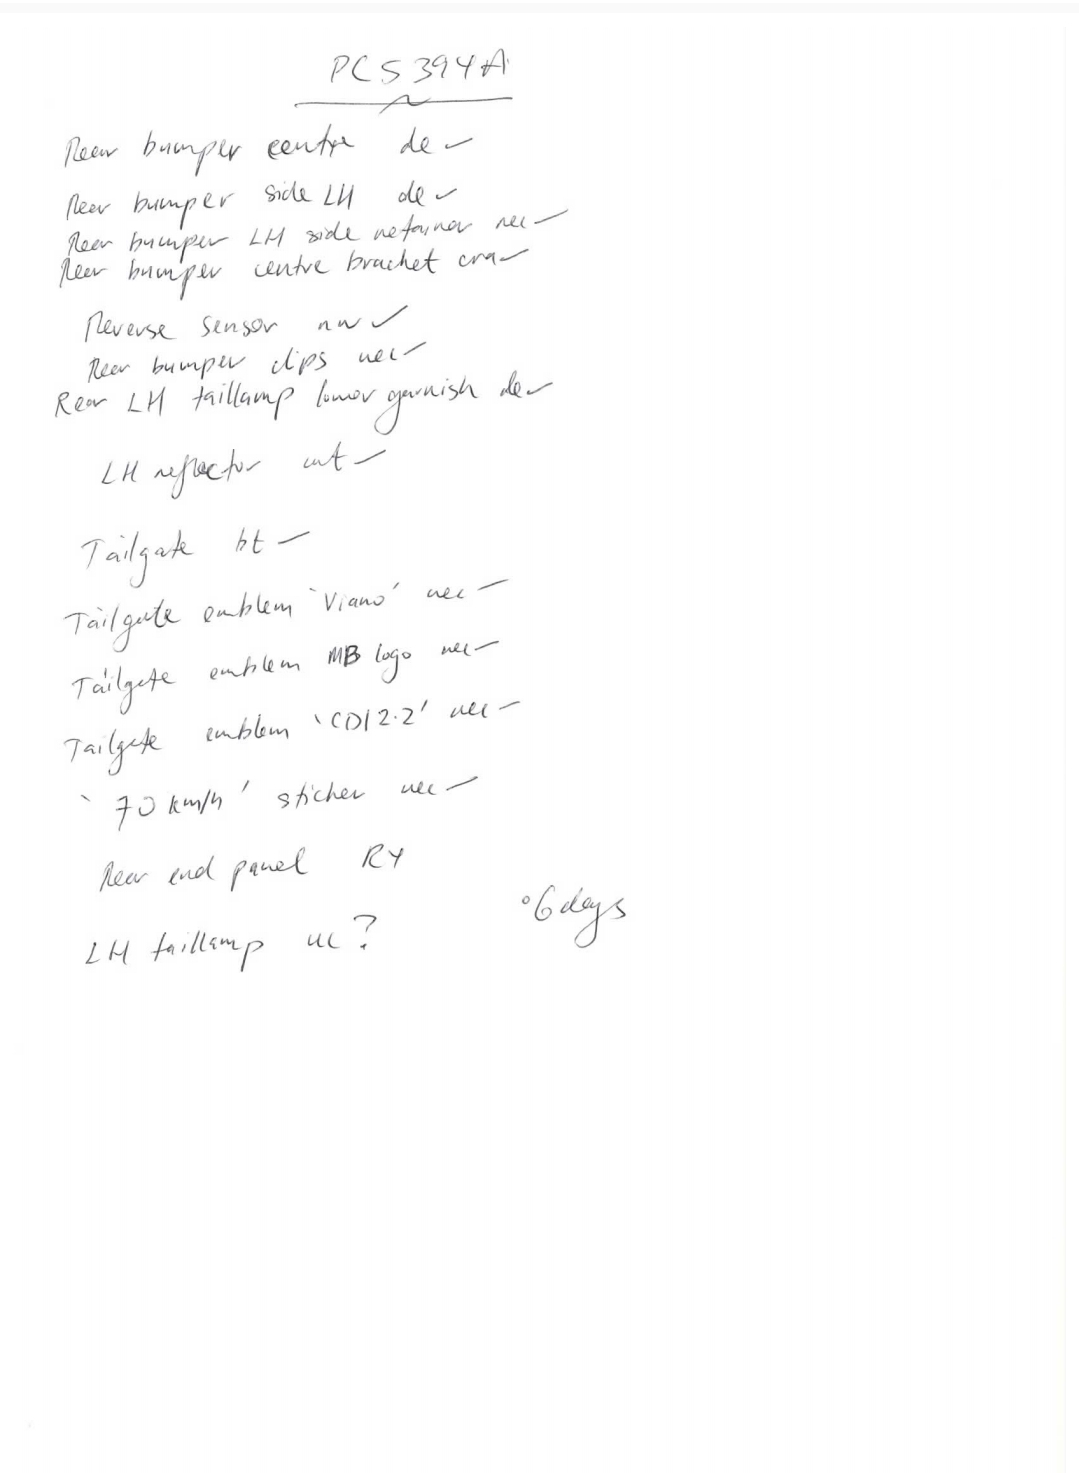 PC5394A
Rear bumper centre de ✓
Rear bumper side LH de ✓
Rear bumper LH side retainer nec ✓
Rear bumper centre bracket cra ✓
Reverse sensor nw ✓
Rear bumper clips nec ✓
Rear LH taillamp lower garnish de ✓
LH reflector cut ✓
Tailgate bt ✓
Tailgate emblem 'Viano' nec ✓
Tailgate emblem MB logo nec ✓
Tailgate emblem 'CDI 2.2' nec ✓
'70 km/h' sticker nec ✓
Rear end panel RY
6 days
LH taillamp ?